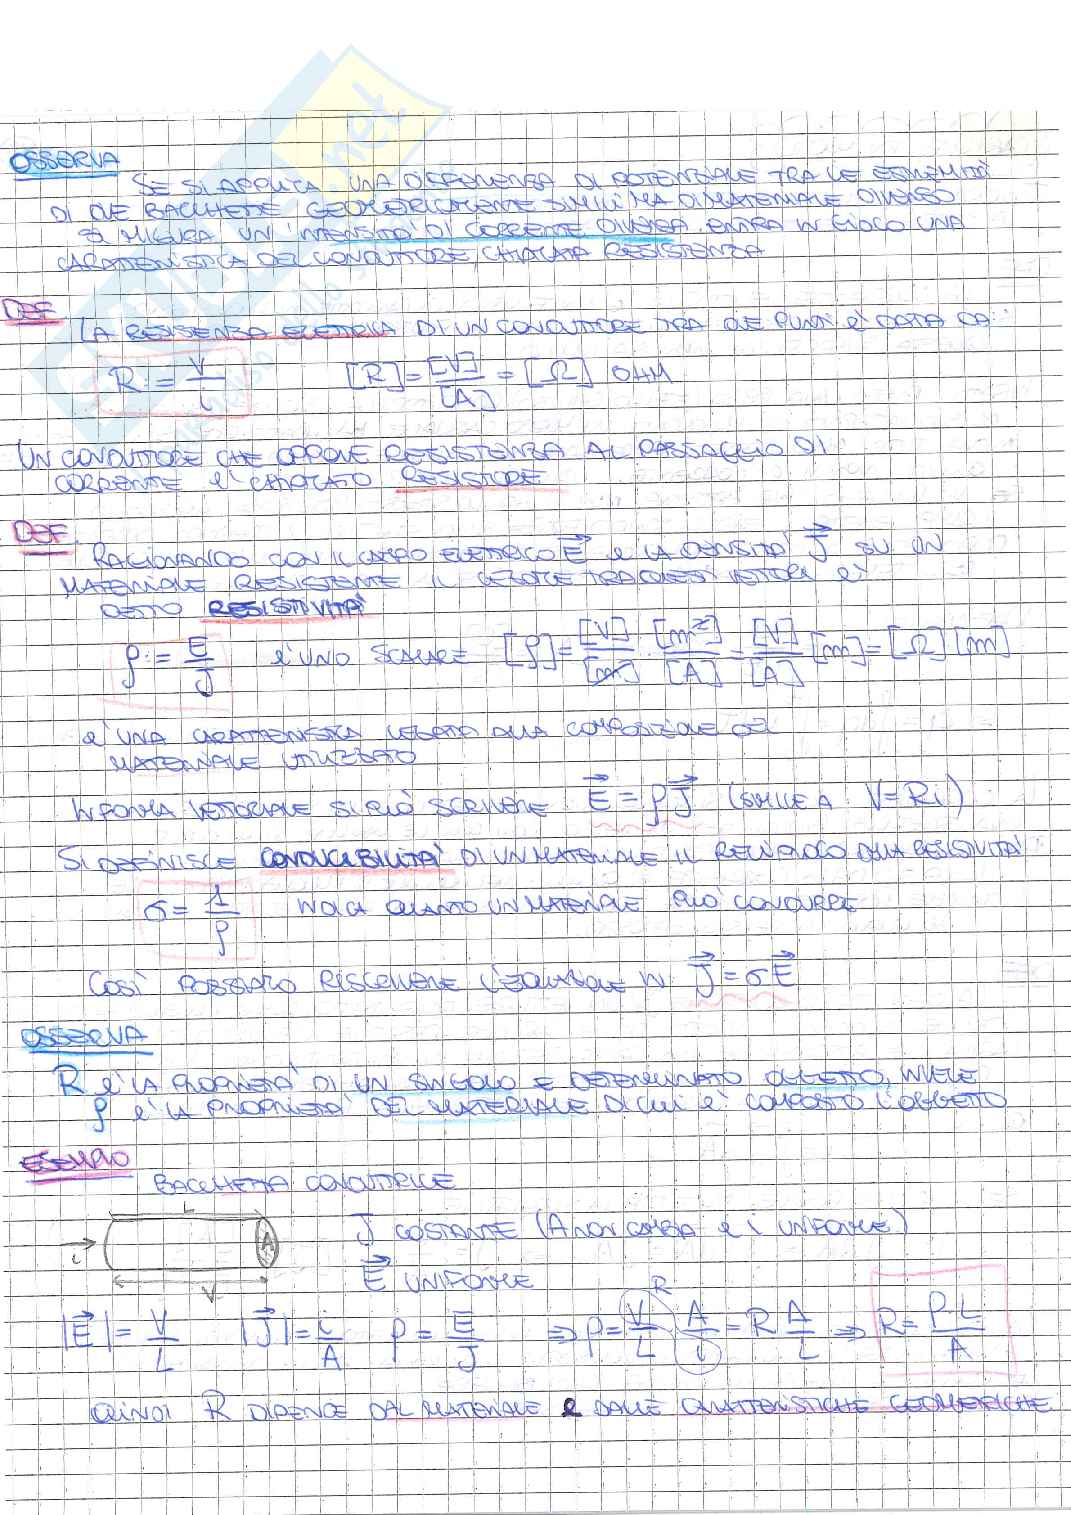 OSSERVA
SE SI APPLICA UNA DIFFERENZA DI POTENZIALE TRA LE ESTREMITÀ
DI DUE BACCHETTE GEOMETRICAMENTE SIMILI MA DI MATERIALE DIVERSO
SI MISURA UN'INTENSITÀ DI CORRENTE DIVERSA. ENTRA IN GIOCO UNA
CARATTERISTICA DEL CONDUTTORE, CHIAMATA RESISTENZA
DEF
LA RESISTENZA ELETTRICA DI UN CONDUTTORE TRA DUE PUNTI È DATA DA:
R := V/i [R] = [V]/[A] = [Ω] OHM
UN CONDUTTORE CHE OPPONE RESISTENZA AL PASSAGGIO DI
CORRENTE È CHIAMATO RESISTORE
DEF.
RAGIONANDO CON IL CAMPO ELETTRICO E⃗ E LA DENSITÀ J⃗ SU UN
MATERIALE RESISTENTE IL TRA QUESTI VETTORI È
DETTO RESISTIVITÀ
ρ := E/J È UNO SCALARE [ρ] = [V]/[m] · [m²]/[A] = [V]/[A] [m] = [Ω] [m]
È UNA CARATTERISTICA LEGATA ALLA COMPOSIZIONE DEL
MATERIALE UTILIZZATO
IN FORMA VETTORIALE SI PUÒ SCRIVERE E⃗ = ρJ⃗ (SIMILE A V = Ri)
SI DEFINISCE CONDUCIBILITÀ DI UN MATERIALE IL RECIPROCO DELLA RESISTIVITÀ
σ = 1/ρ INDICA QUANTO UN MATERIALE PUÒ CONDURRE
COSÌ POSSIAMO RISCRIVERE L'EQUAZIONE IN J⃗ = σE⃗
OSSERVA
R È LA PROPRIETÀ DI UN SINGOLO E DETERMINATO OGGETTO, INVECE
ρ È LA PROPRIETÀ DEL MATERIALE DI CUI È COMPOSTO L'OGGETTO
ESEMPIO
BACCHETTA CONDUTTRICE
L
i A
V
J COSTANTE (A NON CAMBIA E i UNIFORME)
E⃗ UNIFORME
R
|E⃗| = V/L |J⃗| = i/A ρ = E/J ⇒ ρ = V/L A/i = R A/L ⇒ R = ρL/A
QUINDI R DIPENDE DAL MATERIALE E DALLE CARATTERISTICHE GEOMETRICHE